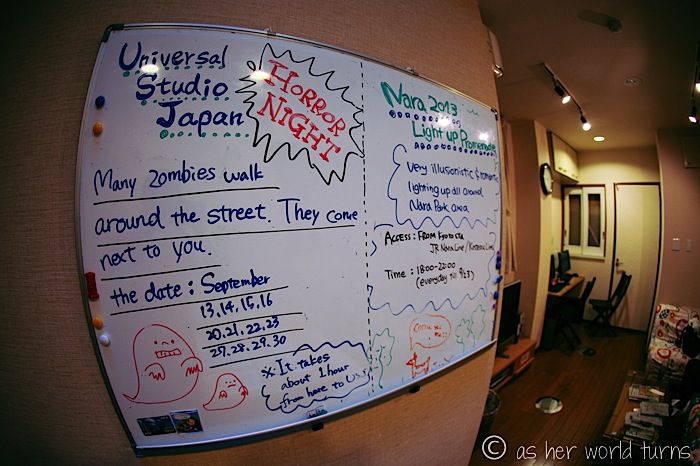 Universal
Studio
Japan
HORROR
NIGHT
Many zombies walk
around the street. They come
next to you.
the date : September
13, 14, 15, 16
20, 21, 22, 23
27, 28, 29, 30
※ It takes
about 1 hour
from here to
Nara 2013
Light up Promenade
Very illusionistic &
lighting up all around
Nara Park area
ACCESS : FROM KYOTO STA
JR Nara Line / Kintetsu Line
Time : 18:00-22:00
(everyday till 9/23)
© as her world turns